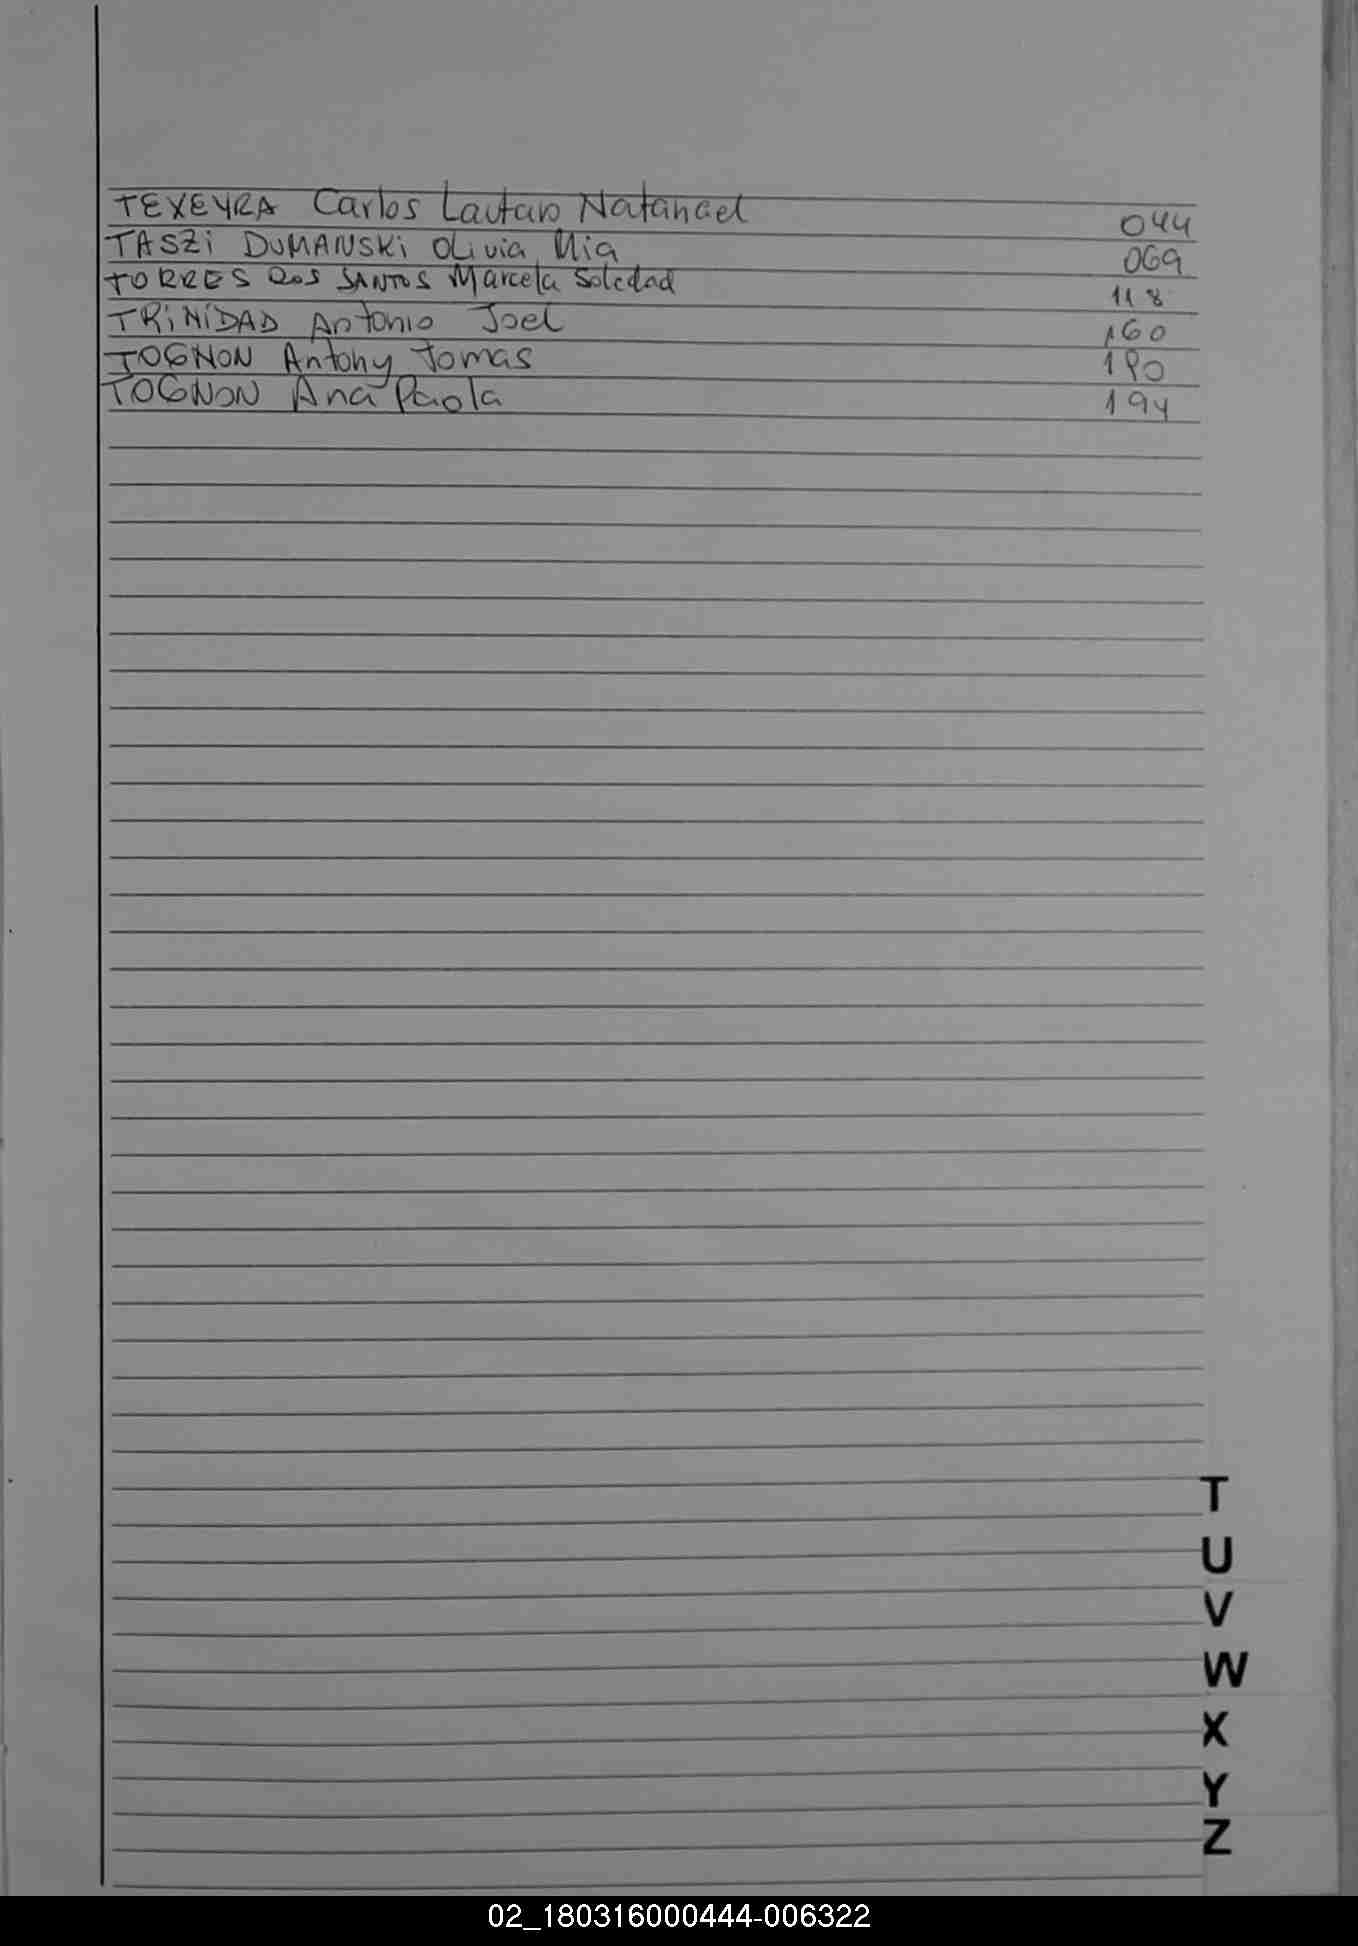 TEXEYRA Carlos Lautaro Natanael 044
TASZi DUMANSKi Olivia Mia 069
TORRES DOS SANTOS Marcela Soledad 118
TRiNiDAD Antonio Joel 160
TOGNON Antony Tomas 190
TOGNON Ana Paola 194
T
U
V
W
X
Y
Z
02_180316000444-006322